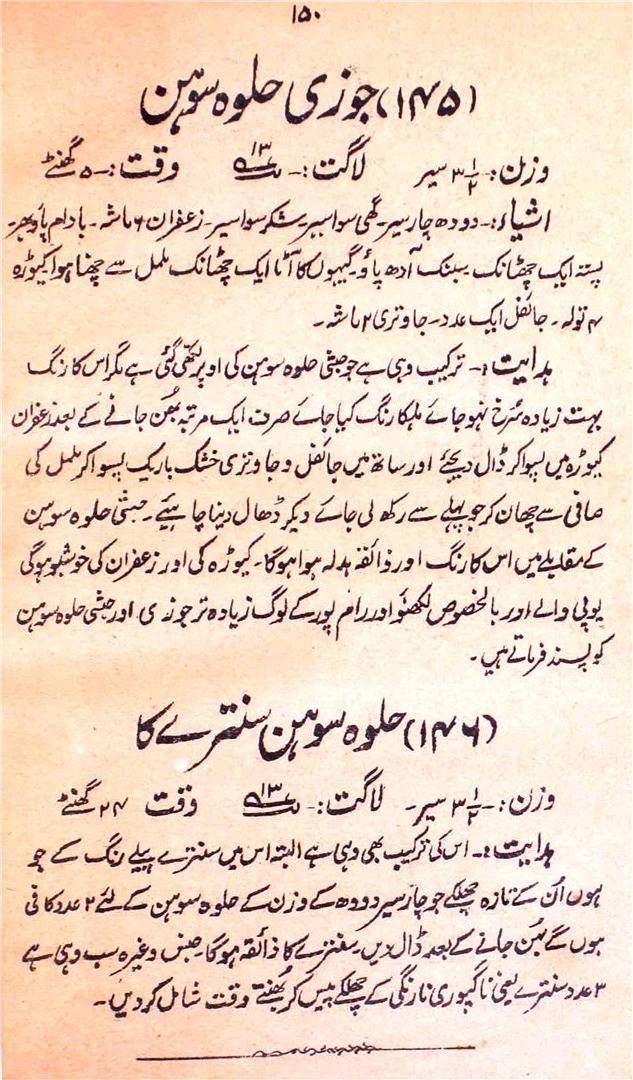 ۱۵۰
(۱۴۵) جوزی حلوہ سوہن
وزن:- ۳ ۱/۲ سیر لاگت:- ۱۳ وقت:- ۵ گھنٹے
اشیاء:- دودھ چار سیر۔ گھی سوا سیر۔ شکر سوا سیر۔ زعفران ۶ ماشہ۔ بادام پاؤ بھر۔
پستہ ایک چھٹانک۔ سمنک آدھ پاؤ۔ گیہوں کا آٹا ایک چھٹانک ململ سے چھنا ہوا کیوڑہ
۴ تولہ۔ جائفل ایک عدد۔ جاوتری ۲ ماشہ۔
ہدایت:- ترکیب وہی ہے جو حبشی حلوہ سوہن کی اوپر لکھی گئی ہے مگر اس کا رنگ
بہت زیادہ سُرخ نہو جائے ہلکا رنگ کیا جائے صرف ایک مرتبہ بھُن جانے کے بعد زعفران
کیوڑہ میں پسوا کر ڈال دیجئے اور ساتھ میں جائفل و جاوتری خشک باریک پسوا کر ململ کی
صافی سے چھان کر جو پہلے سے رکھ لی جائے دیکر ڈھال دینا چاہیئے۔ حبشی حلوہ سوہن
کے مقابلے میں اس کا رنگ اور ذائقہ بدلہ ہوا ہوگا۔ کیوڑہ کی اور زعفران کی خوشبو ہوگی
یوپی والے اور بالخصوص لکھنؤ اور رام پور کے لوگ زیادہ تر جوزی اور حبشی حلوہ سوہن
کو پسند فرماتے ہیں۔
(۱۴۶) حلوہ سوہن سنترے کا
وزن:- ۳ ۱/۲ سیر۔ لاگت:- ۱۳ وقت ۲۴ گھنٹے
ہدایت:- اس کی ترکیب بھی وہی ہے البتہ اس میں سنترے پیلے رنگ کے جو
ہوں اُن کے تازہ چھلکے جو چار سیر دودھ کے وزن کے حلوہ سوہن کے لئے ۲ عدد کافی
ہوں گے بھُن جانے کے بعد ڈال دیں۔ سنترے کا ذائقہ ہوگا۔ جنس وغیرہ سب وہی ہے
۳ عدد سنترے یعنی ناگپوری نارنگی کے چھلکے پیس کر بھُنتے وقت شامل کر دیں۔